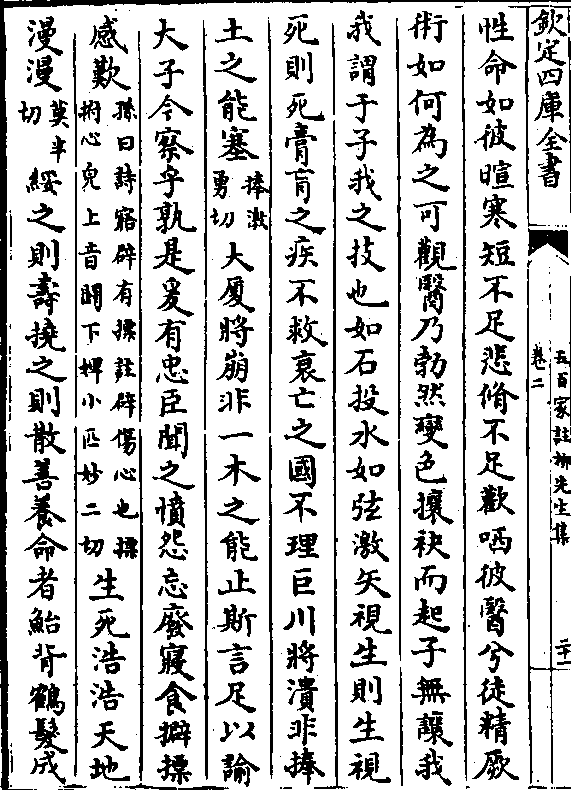 欽定四庫全書
五百家註柳先生集
卷二
二十一
性命如彼暄寒短不足悲脩不足歡哂彼醫兮徒精厥
術如何為之可觀醫乃勃然變色攘袂而起子無讓我
我謂于子我之技也如石投水如弦激矢視生則生視
死則死膏肓之疾不救衰亡之國不理巨川將潰非捧
土之能塞捧激勇切大厦將崩非一木之能止斯言足以諭
大子今察乎孰是爰有忠臣聞之憤怨忘廢寢食擗摽
感歎孫曰詩寤辟有摽註辟傷心也摽拊心皃上音闢下婢小匹妙二切生死浩浩天地
漫漫莫半切綏之則壽撓之則散善養命者鮐背鶴髮成